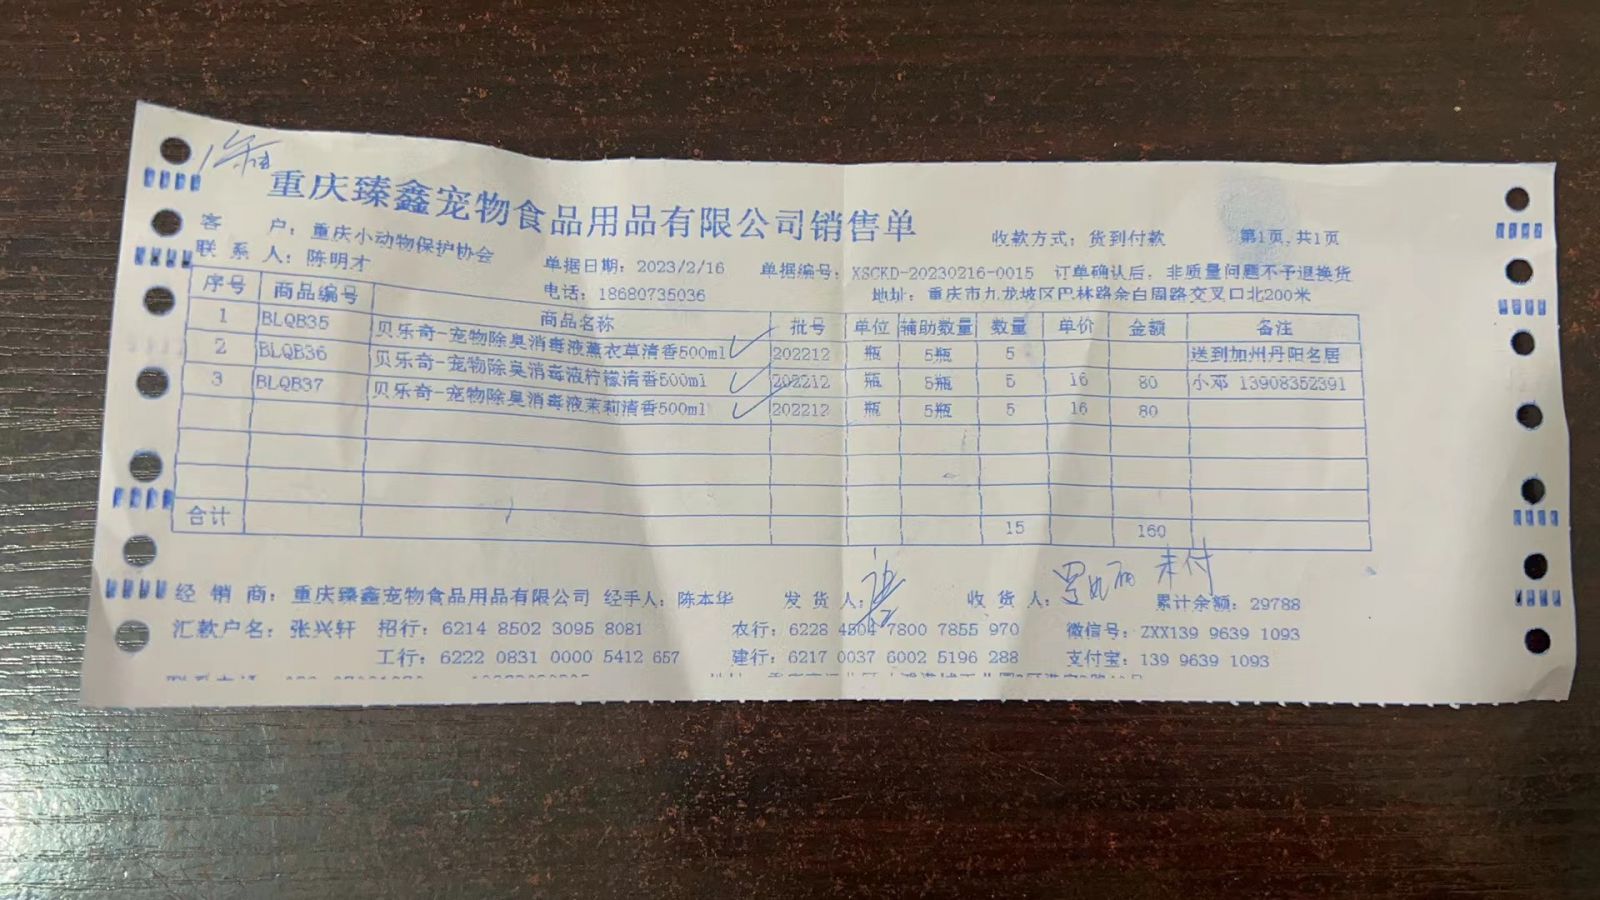 重庆臻鑫宠物食品用品有限公司销售单
收款方式：货到付款 第1页,共1页
客 户：重庆小动物保护协会 单据日期：2023/2/16 单据编号：XSCKD-20230216-0015 订单确认后，非质量问题不予退换货
联 系 人：陈明才 电话：18680735036 地址：重庆市九龙坡区巴林路余白周路交叉口北200米
序号 商品编号 商品名称 批号 单位 辅助数量 数量 单价 金额 备注
1 BLQB35 贝乐奇-宠物除臭消毒液薰衣草清香500ml 202212 瓶 5瓶 5 送到加州丹阳名居
2 BLQB36 贝乐奇-宠物除臭消毒液柠檬清香500ml 202212 瓶 5瓶 5 16 80 小邓 13908352391
3 BLQB37 贝乐奇-宠物除臭消毒液茉莉清香500ml 202212 瓶 5瓶 5 16 80
合计 15 160
未付
经 销 商：重庆臻鑫宠物食品用品有限公司 经手人：陈本华 发 货 人： 收 货 人： 累计余额：29788
汇款户名：张兴轩 招行：6214 8502 3095 8081 农行：6228 4804 7800 7855 970 微信号：ZXX139 9639 1093
工行：6222 0831 0000 5412 657 建行：6217 0037 6002 5196 288 支付宝：139 9639 1093